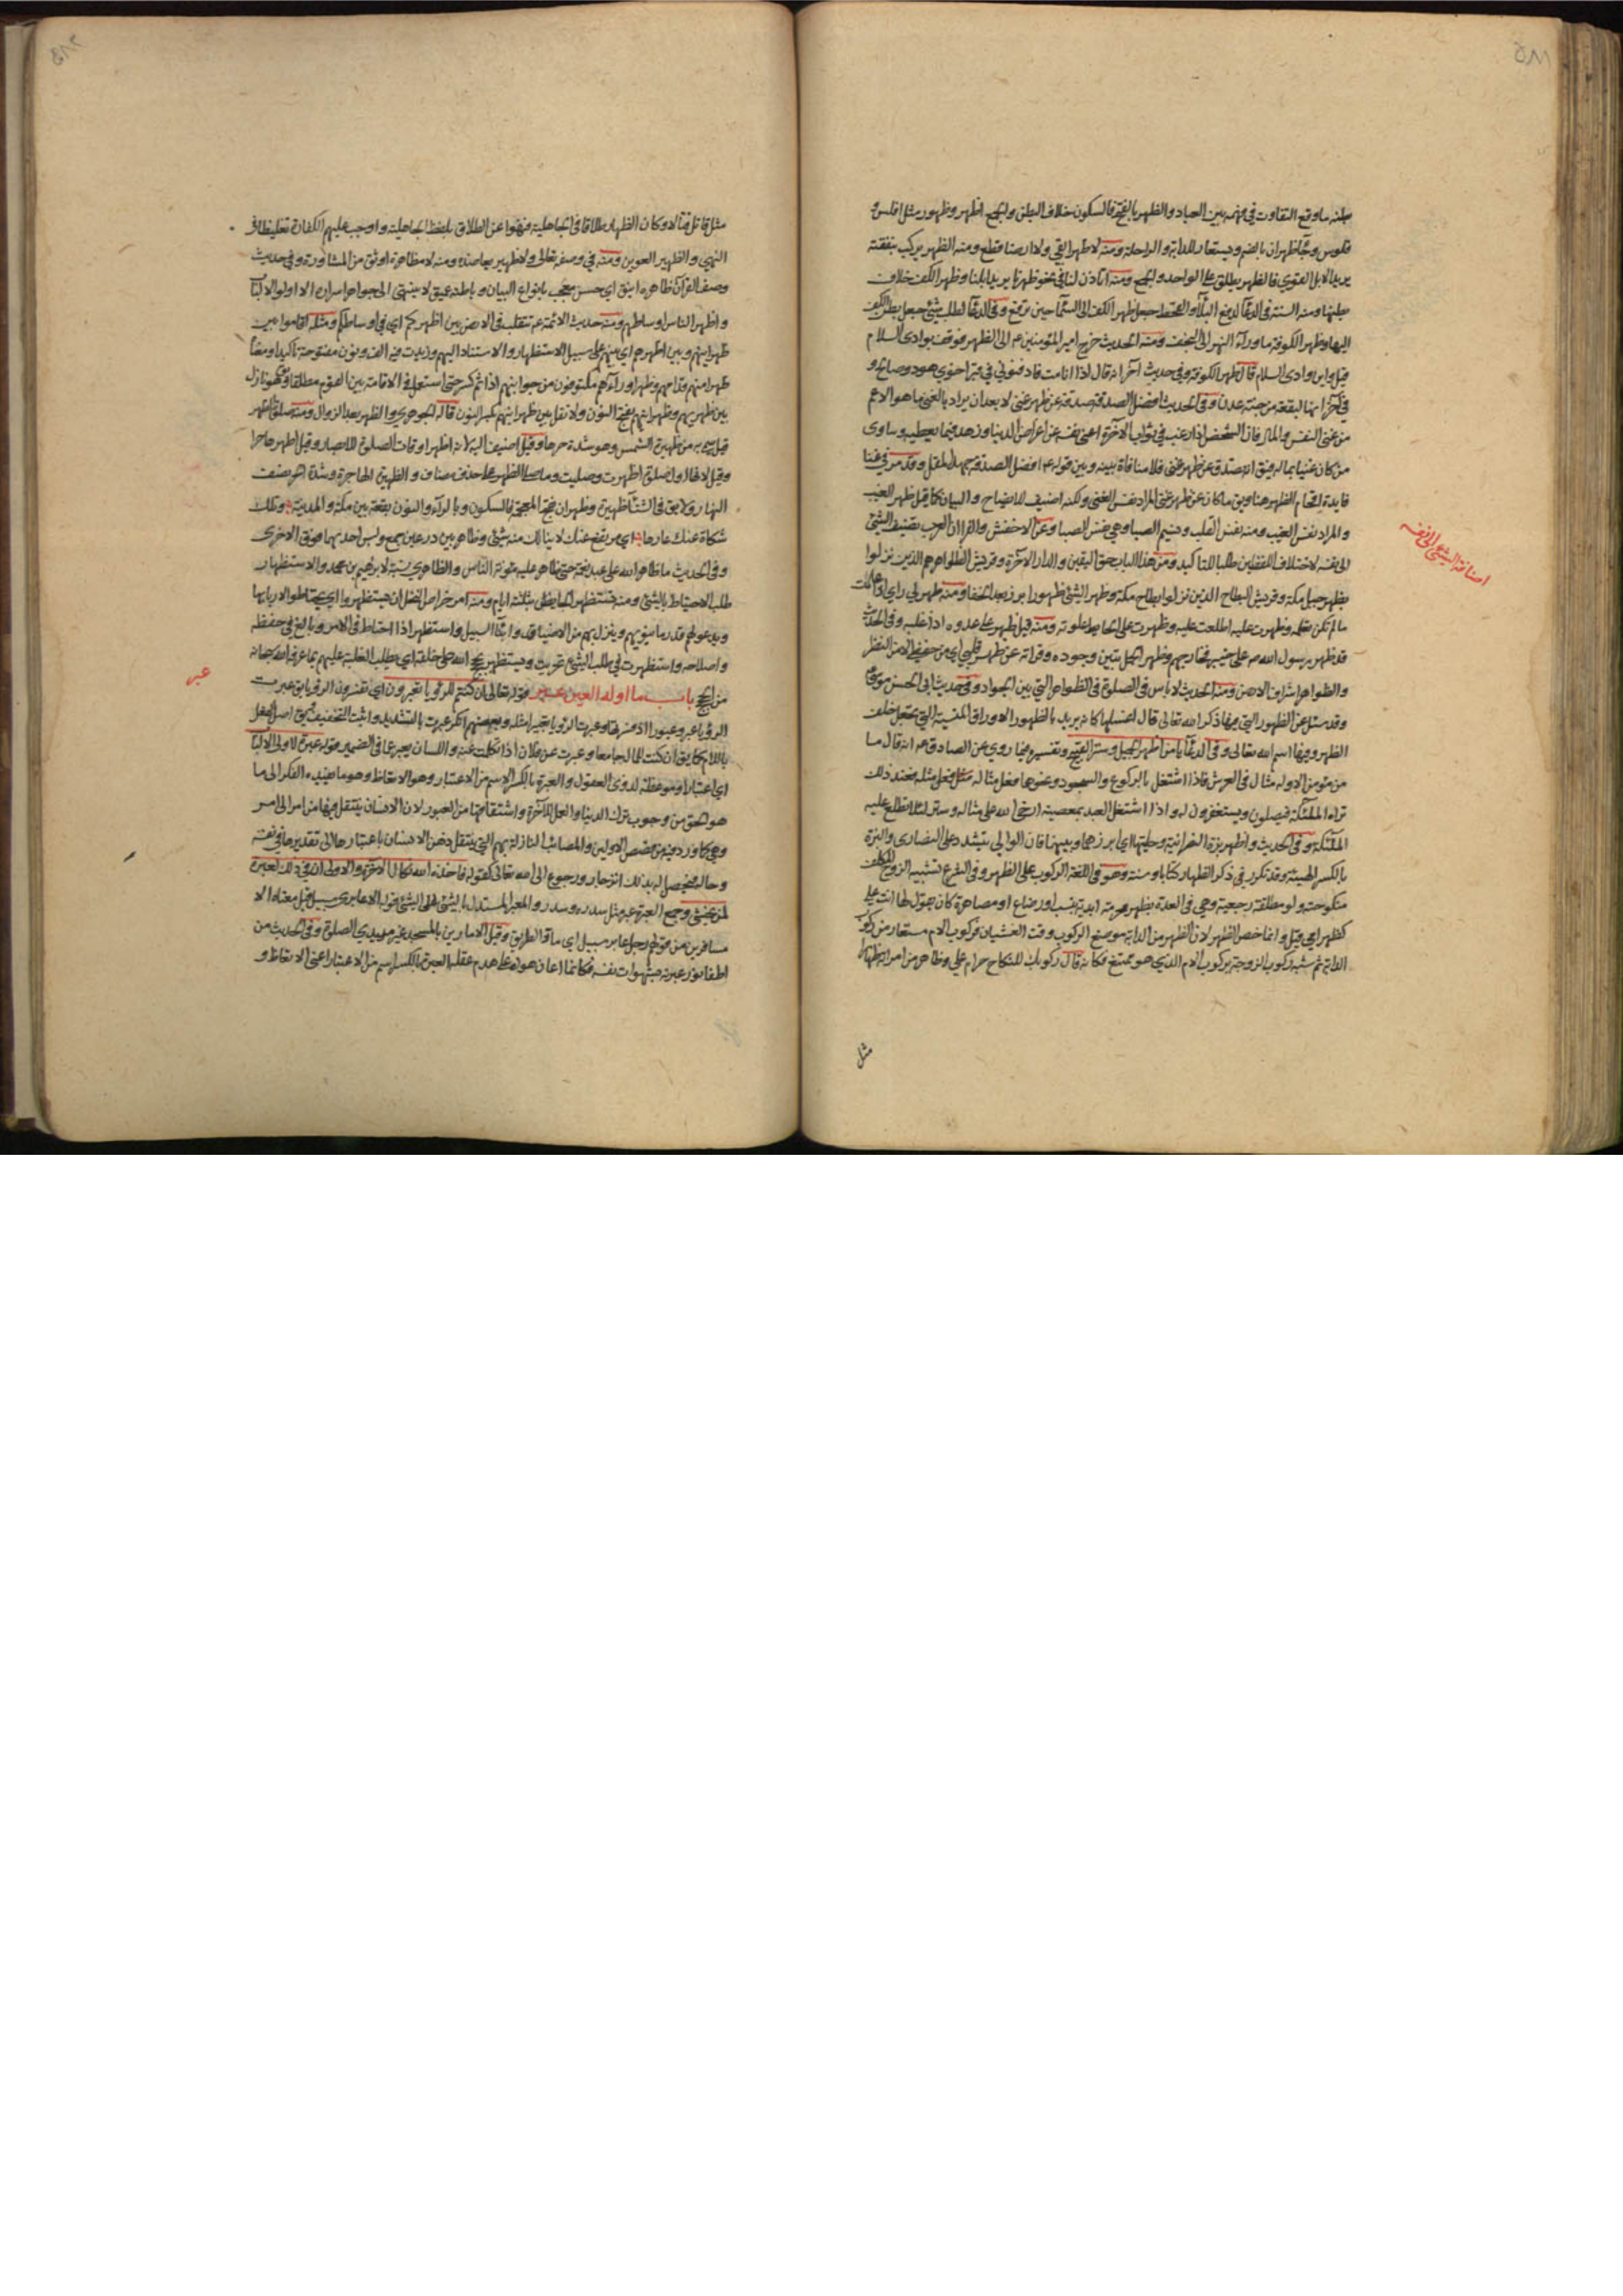 بطنه ما وقع التفاوت في فهمه بين العباد والظهر بالفتح فالسكون خلاف البطن والجمع اظهر وظهور مثل افلس و
فلوس وجاء ظهران بالضم ويستعار للدابة والراحلة ومنه لا ظهرا ابقى ولا ارضا قطع ومنه الظهر يركب بنفقته
يريد الابل القوي فالظهر يطلق على الواحد والجمع ومنه اتاذن لنا في نحو ظهرنا يريد ابلنا وظهر الكف خلاف
بطنها ومنه السنة في الدعاء لدفع البلاء والقحط جعل ظهر الكف الى السماء حين ترفع وفي الدعاء لطلب شئ جعل بطن الكف
اليها وظهر الكوفة ما وراء النهر الى النجف ومنه الحديث خرج امير المؤمنين ع الى الظهر فوقف بوادى السلام
قيل واين وادى السلام قال ظهر الكوفة وفي حديث آخر انه قال اذا انا مت فادفنوني في قبر اخوي هود وصالح و
في آخر انها لبقعة من جنة عدن وفي الحديث افضل الصدقة صدقة عن ظهر غنى لا بعد ان يراد بالغنى ما هو الاعم
من غنى النفس والمال فان الشخص اذا رغب في ثواب الآخرة اغنى نفسه عن اعراض الدنيا وزهد فيما يعطيه وساوى
من كان غنيا بماله فيق انه تصدق عن ظهر غنى فلا منافاة بينه وبين قوله ع افضل الصدقة جهد المقل وقد مر في غنا
فايدة اقحام الظهر هنا ويق ما كان عن ظهر غنى المراد نفس الغنى ولكنه اضيف للايضاح والبيان كما قيل ظهر الغيب
والمراد نفس الغيب ومنه نفس القلب ونسيم الصبا وهي نفس الصبا وعن الاخفش والفراء ان العرب تضيف الشئ
الى نفسه لاختلاف اللفظين طلبا للتاكيد ومن هذا الباب حق اليقين والدار الآخرة وقريش الظواهر هم الذين نزلوا
بظهر جبل مكة وقريش البطاح الذين نزلوا بطاح مكة وظهر الشئ ظهورا برز بعد الخفاء ومنه ظهر لي راي اذا علمت
ما لم تكن تعلمه وظهرت عليه اطلعت عليه وظهرت على الحايط علوته ومنه قيل ظهر على عدوه اذا غلبه وفي الحديث
قد ظهر رسول الله ص على خيبر فخارجهم وظهر الحمل تبين وجوده وقراته عن ظهر قلبي اي من حفظي لا من النظر
والظواهر اشراف الارض ومنه الحديث لا باس في الصلوة في الظواهر التي بين الجواد وفي حديث ابى الحسن موسى ع
وقد سئل عن الظهور التي فيها ذكر الله تعالى قال اغسلها كانه يريد بالظهور الاوراق المنسية التي تجعل خلف
الظهر وفيها اسم الله تعالى وفي الدعاء يا من اظهر الجميل وستر القبيح وتفسيره فيما روي عن الصادق ع انه قال ما
من مؤمن الا وله مثال في العرش فاذا اشتغل بالركوع والسجود ونحوها فعل مثاله مثل فعله مثله فعند ذلك
تراه الملئكة فيصلون ويستغفرون له واذا اشتغل العبد بمعصية ارخى الله على مثاله سترا لئلا تطلع عليه
الملئكة وفي الحديث واظهر بزة النصرانية وحليتها اي ابرزها وبينها فان الوالي يتشدد على النصارى والبزة
بالكسر الهيئة وقد تكرر في ذكر الظهار كتابا وسنة وهو في اللغة الركوب على الظهر وفي الشرع تشبيه الزوج المكلف
منكوحته ولو مطلقة رجعية وهي في العدة بظهر محرمة ابدية بنسب او رضاع او مصاهرة كان يقول لها انت علي
كظهر امي قيل وانما خص الظهر لان الظهر من الدابة موضع الركوب وقت الغشيان فركوب الام مستعار من ركوب
الدابة ثم شبه ركوب الزوجة بركوب الام الذي هو ممتنع فكانه قال ركوبك للنكاح حرام علي وظاهر من امراته ظهارا
مثل
اضافة الشئ الى نفسه
مثل قاتل قتالا وكان الظهار طلاقا في الجاهلية فنهوا عن الطلاق بلفظ الجاهلية واوجب عليهم الكفارة تغليظا في
النهي والظهير العوين ومنه في وصفه تعالى ولا ظهير يعاضده ومنه لا مظاهرة اوثق من المشاورة وفي حديث
وصف القرآن ظاهره انيق اي حسن معجب بانواع البيان وباطنه عميق لا ينتهى الى جواهر اسراره الا اولو الالباب
واظهر الناس اوساطهم ومنه حديث الائمة ع نتقلب في الارض بين اظهركم اي في اوساطكم ومثله اقاموا بين
ظهرانيهم وبين اظهرهم اي بينهم على سبيل الاستظهار والاستناد اليهم وزيدت فيه الف ونون مفتوحة تاكيدا ومعناه
ظهرا منهم قدامهم وظهرا وراءهم فهم مكنوفون من جوانبهم اذا ثم كثر حتى استعمل في الاقامة بين القوم مطلقا وقولهم هو نازل
بين ظهريهم وظهرانيهم بفتح النون ولا تقل بين ظهرانيهم بكسر النون قاله الجوهري والظهر بعد الزوال ومنه صلوة الظهر
قيل سمي به من ظهيرة الشمس وهو شدة حرها وقيل اضيف اليه لانه اظهر اوقات الصلوة للابصار وقيل اظهرها حرا
وقيل لانها اول صلوة اظهرت وصليت وما صلي الظهر على حذف مضاف والظهيرة الهاجرة وشدة الحر نصف
النهار ولا يق في الشتاء ظهيرة وظهران بفتح المعجمة فالسكون وبالراء والنون بقعة بين مكة والمدينة وتلك
شكاة عنك عارها اي مرتفع عنك لا ينالك منه شئ وظاهر بين درعين جمع ولبس احديهما فوق الاخرى
وفي الحديث ما ظاهر الله على عبد نعمة حتى ظاهر عليه مؤنة الناس والظاهري نسبة لابرهيم بن محمد والاستظهار
طلب الاحتياط بالشئ ومنه تستظهر الحايض بثلثة ايام ومنه امر خراص النخل ان يستظهروا اي يحتاطوا لاربابها
ويدعو لهم قدر ما ينويهم وينزل بهم من الاضياف وابناء السبيل واستظهر اذا احتاط في الامر وبالغ في حفظه
واصلاحه واستظهرت في طلب الشئ تحريت ويستظهر بحجج الله على خلقه اي يطلب الغلبة عليهم بما عرفه الله سبحانه
من الحجج باب ما اوله العين عبر قوله تعالى ان كنتم للرؤيا تعبرون اي تفسرون الرؤيا يق عبرت
الرؤيا عبرا وعبورا اذ فسرتها وعبرت الرؤيا تعبيرا مثله وبعضهم انكر عبرت بالتشديد واثبت التخفيف
باللام كما يق ان كنت للمال جامعا وعبرت عن فلان اذا تكلمت عنه واللسان يعبر عما في الضمير قوله عبرة لاولى الالباب
اي اعتبارا وموعظة لذوى العقول والعبرة بالكسر الاسم من الاعتبار وهو الاتعاظ وهو ما يفيده الفكر الى ما
هو الحق من وجوب ترك الدنيا والعمل للآخرة واشتقاقها من العبور لان الانسان ينتقل فيها من امر الى امر
وهي كما ورد فيه من قصص الاولين والمصائب النازلة بهم التي ينتقل ذهن الانسان باعتبارها الى تقديرها في نفسه
وحاله فيحصل له بذلك انزجار ورجوع الى الله تعالى كقوله فاخذه الله نكال الآخرة والاولى ان في ذلك لعبرة
لمن يخشى وجمع العبرة عبر مثل سدرة وسدر والمعبر المستدل بالشئ على الشئ قوله الا عابرى سبيل قيل معناه الا
مسافرين من قولهم رجل عابر سبيل اي مار الطريق وقيل الا مارين بالمسجد غير مريدي الصلوة وفي الحديث من
اطفا نور عبرته بشهوات نفسه فكانما اعان هواه على هدم عقله العبرة بالكسر اسم من الاعتبار اعنى الاتعاظ و
عبر